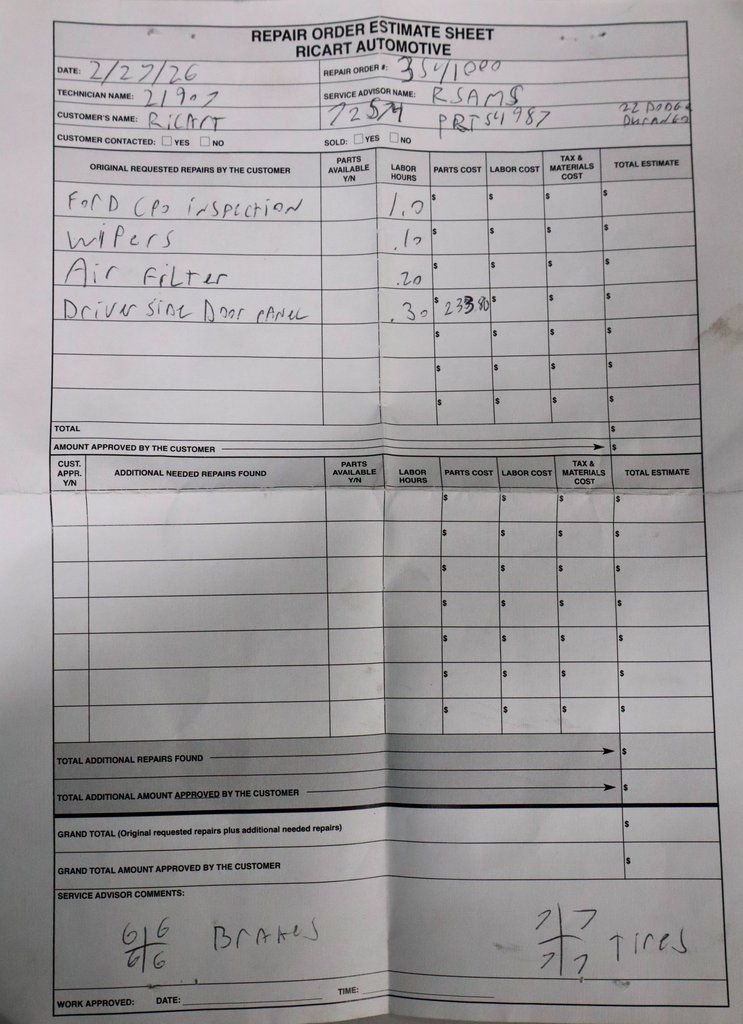 REPAIR ORDER ESTIMATE SHEET
RICART AUTOMOTIVE
DATE: 2/27/26 REPAIR ORDER #:
TECHNICIAN NAME: 21907 SERVICE ADVISOR NAME: RSAMS
CUSTOMER'S NAME: RiCArT PRTS4987 22 DODGE DURANGO
CUSTOMER CONTACTED: YES NO SOLD: YES NO
ORIGINAL REQUESTED REPAIRS BY THE CUSTOMER PARTS AVAILABLE Y/N LABOR HOURS PARTS COST LABOR COST TAX & MATERIALS COST TOTAL ESTIMATE
Ford CPO inspection 1.0 $ $ $ $
Wipers .10 $ $ $ $
Air Filter .20 $ $ $ $
Driver Side Door panel .30 $ 233.80 $ $ $
$ $ $ $
$ $ $ $
$ $ $ $
TOTAL $
AMOUNT APPROVED BY THE CUSTOMER $
CUST. APPR. Y/N ADDITIONAL NEEDED REPAIRS FOUND PARTS AVAILABLE Y/N LABOR HOURS PARTS COST LABOR COST TAX & MATERIALS COST TOTAL ESTIMATE
$ $ $ $
$ $ $ $
$ $ $ $
$ $ $ $
$ $ $ $
$ $ $ $
$ $ $ $
TOTAL ADDITIONAL REPAIRS FOUND $
TOTAL ADDITIONAL AMOUNT APPROVED BY THE CUSTOMER $
GRAND TOTAL (Original requested repairs plus additional needed repairs) $
GRAND TOTAL AMOUNT APPROVED BY THE CUSTOMER $
SERVICE ADVISOR COMMENTS:
6 6 Brakes 7 7 Tires
6 6 7 7
WORK APPROVED: DATE: TIME: